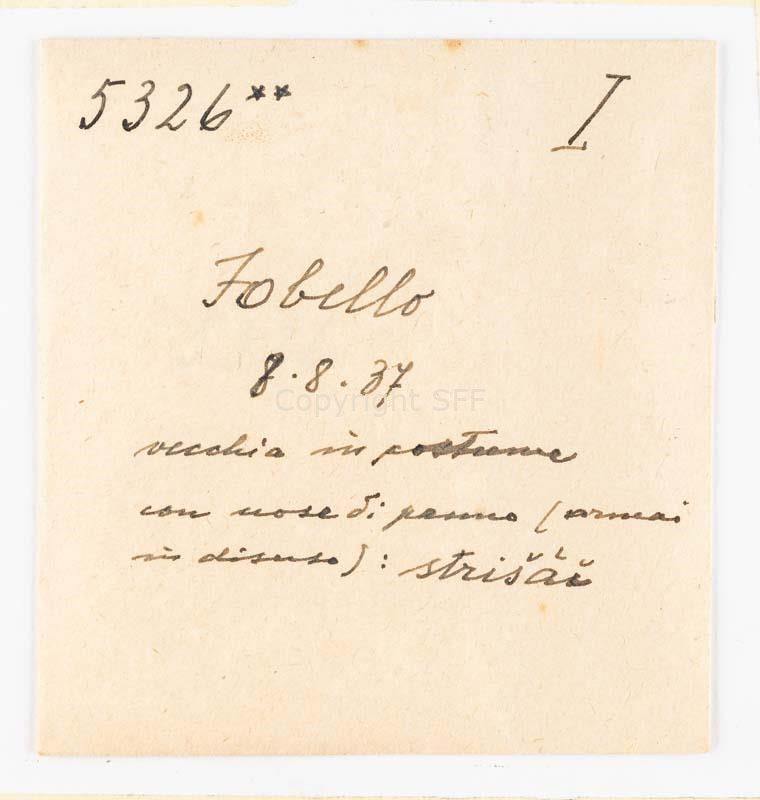 5326** I
Fobello
8.8.37
Copyright SFF
vecchia in costume
con uose di panno (ormai
in disuso):